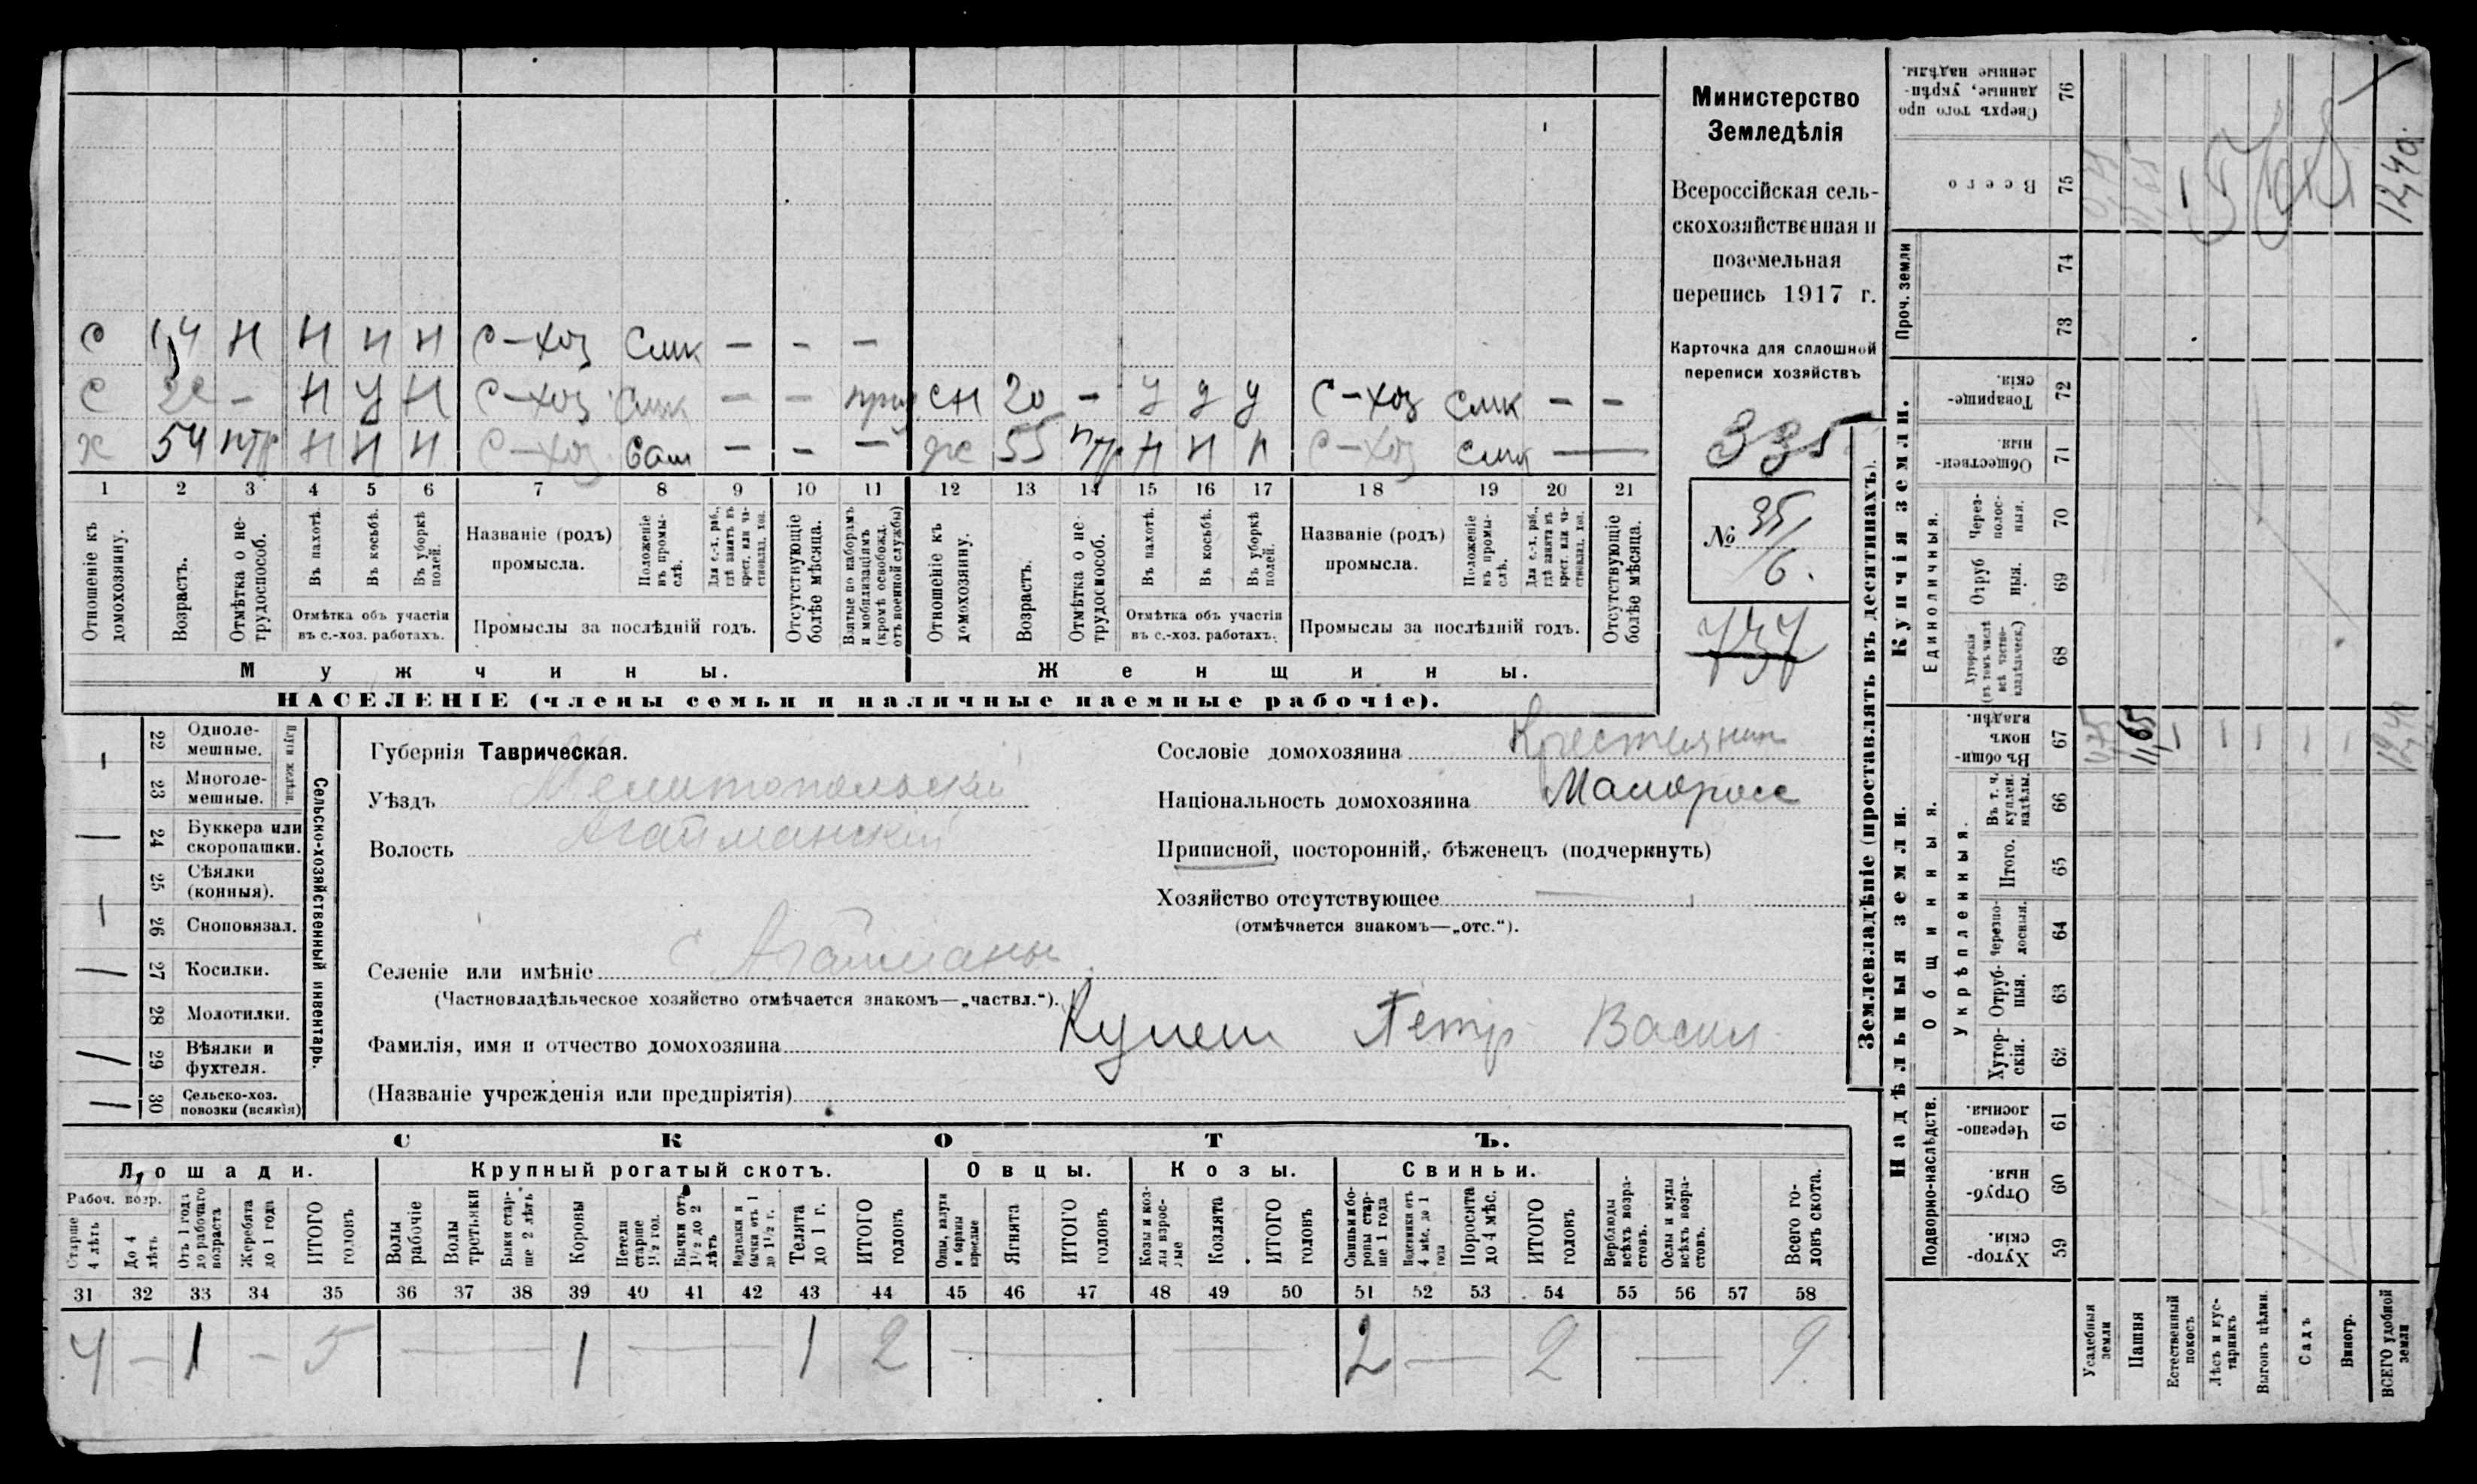 С 14 Н Н Н Н С-хоз Смк — — —
С 22 — Н У Н С-хоз Смк — — приз сн 20 — У У У С-хоз смк — —
Х 54 птр Н Н Н С-хоз Сам — — — ж 55 птр Н Н Н С-хоз смк —
1 2 3 4 5 6 7 8 9 10 11 12 13 14 15 16 17 18 19 20 21
Отношеніе къ домохозяину.
Возрастъ.
Отмѣтка о не-трудоспособ.
Въ пахотѣ.
Въ косьбѣ.
Въ уборкѣ полей.
Отмѣтка объ участіи
въ с.-хоз. работахъ.
Названіе (родъ)
промысла.
Положеніе въ промы-слѣ.
Для с.-х. раб., гдѣ занятъ въ крест. или ча-стновлад. хоз.
Промыслы за послѣдній годъ.
Отсутствующіе болѣе мѣсяца.
Взятые по наборамъ и мобилизаціямъ (кромѣ освобожд. отъ военной службы)
Отношеніе къ домохозяину.
Возрастъ.
Отмѣтка о не-трудоспособ.
Въ пахотѣ.
Въ косьбѣ.
Въ уборкѣ полей.
Отмѣтка объ участіи
въ с.-хоз. работахъ.
Названіе (родъ)
промысла.
Положеніе въ промы-слѣ.
Для с.-х. раб., гдѣ занята въ крест. или ча-стновлад. хоз.
Промыслы за послѣдній годъ.
Отсутствующіе болѣе мѣсяца.
Мужчины.
Женщины.
НАСЕЛЕНІЕ (члены семьи и наличные наемные рабочіе).
Министерство
Земледѣлія
Всероссійская сель-
скохозяйственная и
поземельная
перепись 1917 г.
Карточка для сплошной
переписи хозяйствъ
335
№ 35/6.
737
22 Одноле-мешные.
23 Многоле-мешные.
Плуги желѣзн.
24 Буккера или скоропашки.
25 Сѣялки (конныя).
26 Сноповязал.
27 Косилки.
28 Молотилки.
29 Вѣялки и фухтеля.
30 Сельско-хоз. повозки (всякія)
Сельско-хозяйственный инвентарь.
— 1 — 1 1 1
Губернія Таврическая.
Уѣздъ Мелитопольскій
Волость Агайманскій
Селеніе или имѣніе с Агайманы
(Частновладѣльческое хозяйство отмѣчается знакомъ—„частвл.“).
Сословіе домохозяина Крестянин
Національность домохозяина Малорос
Приписной, посторонній, бѣженецъ (подчеркнуть)
Хозяйство отсутствующее —
(отмѣчается знакомъ—„отс.“).
Фамилія, имя и отчество домохозяина Кулеш Петр Васил
(Названіе учрежденія или предпріятія)
СКОТЪ.
Лошади.
Крупный рогатый скотъ.
Овцы.
Козы.
Свиньи.
Рабоч. возр.
Старше 4 лѣтъ
До 4 лѣтъ
Отъ 1 года до рабочаго возраста
Жеребята до 1 года
ИТОГО головъ
Волы рабочіе
Волы третьяки
Быки стар-ше 2 лѣтъ
Коровы
Нетели старше 1½ год.
Бычки отъ 1½ до 2 лѣтъ
Телята до 1 г.
ИТОГО головъ
Овцы, валухи и бараны взрослые
Ягнята
ИТОГО головъ
Козы и коз-лы взрос-лые
Козлята
ИТОГО головъ
Свиньи и бо-ровы стар-ше 1 года
Подсвинки отъ 4 мѣс. до 1 года
Поросята до 4 мѣс.
ИТОГО головъ
Верблюды всѣхъ возра-стовъ.
Ослы и мулы всѣхъ возра-стовъ.
Всего го-ловъ скота.
31 32 33 34 35 36 37 38 39 40 41 42 43 44 45 46 47 48 49 50 51 52 53 54 55 56 57 58
4 — 1 — 5 — 1 — 1 2 — — 2 — 2 — 9
Землевладѣніе (проставлять въ десятинахъ).
Купчія земли.
Надѣльныя земли.
Проч. земли
Единоличныя.
Общинныя.
Укрѣпленныя.
Подворно-наслѣдств.
76 Сверхъ того про-данные, укрѣп-ленные надѣлы.
75 Всего
74
73
72 Товарище-скія.
71 Обществен-ныя.
70 Через-полос-ныя.
69 Отруб-ныя.
68 Хуторскія (въ томъ числѣ всѣ частно-владѣльческ.)
67 Въ общин-номъ владѣн.
66 Въ т. ч. куплен. надѣлы.
65 Итого.
64 Черезпо-лосныя.
63 Отруб-ныя.
62 Хутор-скія.
61 Черезпо-лосныя.
60 Отруб-ныя.
59 Хутор-скія.
0,75 11,65 — — — — — 12,40
12,40
Усадебныя земли
Пашня
Естественный покосъ
Лѣсъ и кус-тарникъ
Выгонъ цѣлин.
Садъ
Виногр.
ВСЕГО удобной земли